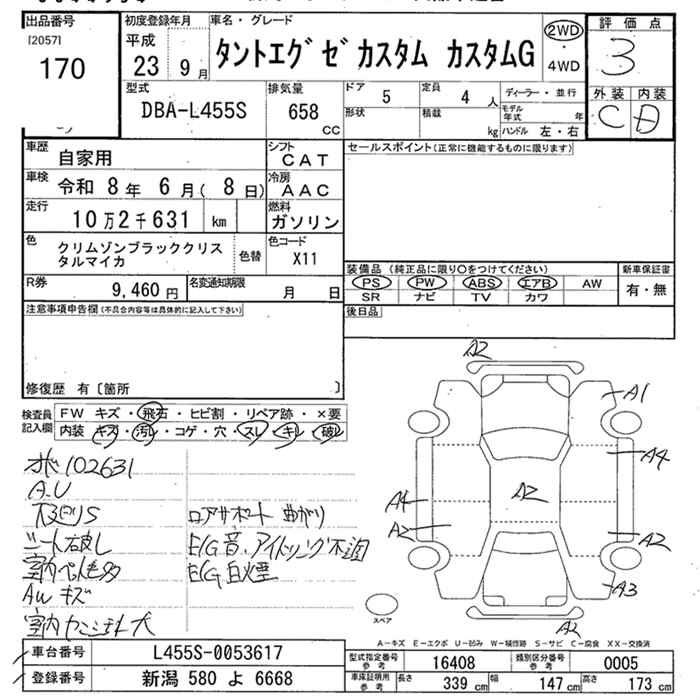 出品番号
[2057]
170
初度登録年月
平成
23 9月
車名・グレード
タントエグゼカスタム カスタムG
2WD
・
4WD
評価点
3
外装 内装
C D
型式
DBA-L455S
排気量
658
cc
ドア
5
定員
4 人
ディーラー・並行
形状
積載
kg
モデル年式 年
ハンドル 左・右
車歴
自家用
シフト
CAT
車検
令和 8年 6月( 8日)
冷房
AAC
走行
10万2千631 km
燃料
ガソリン
色
クリムゾンブラッククリスタルマイカ
色替
色コード
X11
R券
9,460 円
名変通知期限
月 日
注意事項申告欄(不具合内容等は具体的に記入して下さい)
修復歴 有〔箇所 〕
セールスポイント(正常に機能するものに限ります)
装備品(純正品に限り○をつけてください)
PS PW ABS エアB AW
SR ナビ TV カワ
新車保証書
有・無
後日品
検査員記入欄
FW キズ・飛石・ヒビ割・リペア跡・×要
内装・キズ・汚レ・コゲ・穴・スレ・キレ・破レ
102631
A.U
下回りS
シート右破し
室内
AW キズ
室内
ロアサポート 曲がり
E/G音、アイドリング不調
E/G 白煙
A2
A1
A4
A2
A4
A2
A2
A3
A2
スペア
A-キズ E-エクボ U-凹み W-補修跡 S-サビ C-腐食 XX-交換済
車台番号
L455S-0053617
登録番号
新潟 580 よ 6668
型式指定番号
参考
16408
類別区分番号
参考
0005
車庫証明用
参考
長さ 339 cm
幅 147 cm
高さ 173 cm